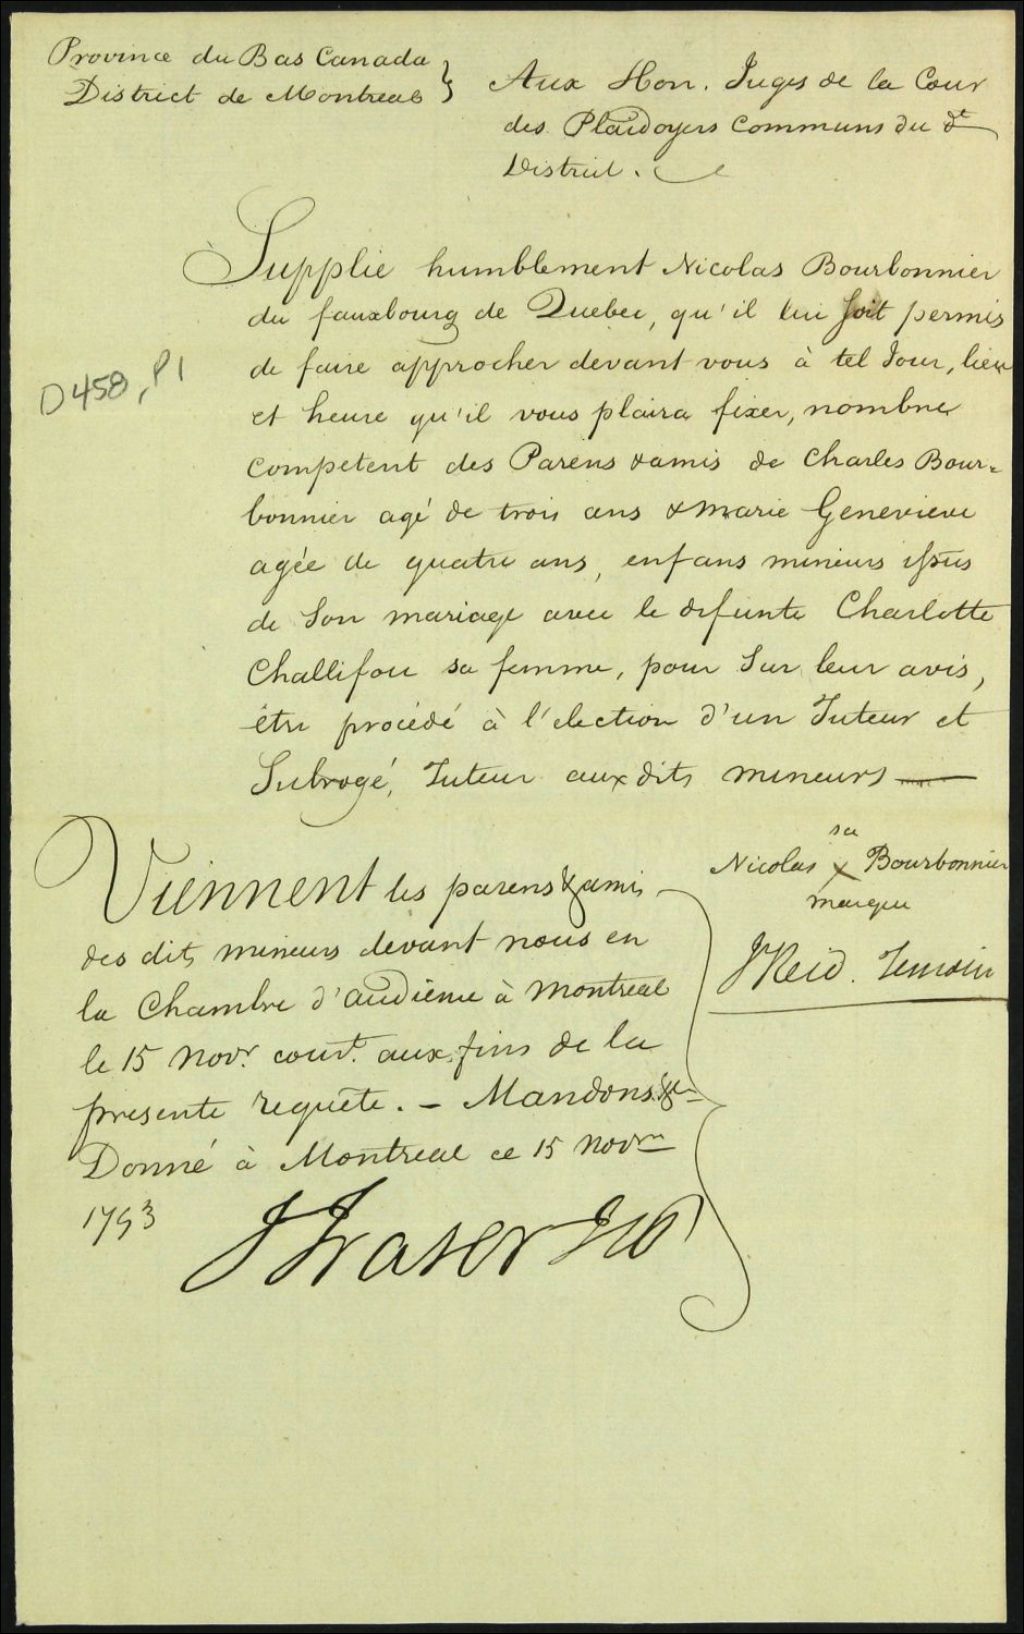 Province du Bas Canada
District de Montreal
Aux Hon. Juges de la Cour
des Plaidoyers Communs du dt
District.
Supplie humblement Nicolas Bourbonnier
du fauxbourg de Quebec, qu'il lui soit permis
de faire approcher devant vous à tel Jour, lieu
et heure qu'il vous plaira fixer, nombre
competent des Parens & amis de Charles Bour-
bonnier agé de trois ans & Marie Genevieve
agée de quatre ans, enfans mineurs issus
de Son mariage avec le defunte Charlotte
Challifou sa femme, pour Sur leur avis,
être procédé à l'election d'un Tuteur et
Subrogé, Tuteur aux dits mineurs
D458, P1
sa
Nicolas x Bourbonnier
marque
J Reid. Temoin
Viennent les parens & amis
des dits mineurs devant nous en
la Chambre d'audience à Montreal
le 15 Novr. court. aux fins de la
presente requête. - Mandons &c
Donné à Montreal ce 15 Novre
1793
J Fraser